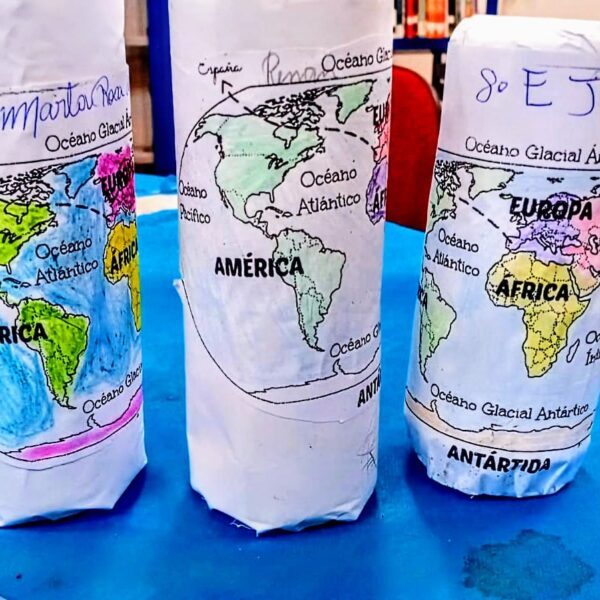 Marta
Océano Glacial Á
EUROPA
Océano
Atlántico
ÁFRICA
RICA
Océano Glacial
España
Océano Glacia
Océano
Pacífico
Océano
Atlántico
EUR
ÁF
AMÉRICA
Océano Glacial
ANTÁ
8º E J
Océano Glacial Ár
EUROPA
Océano
Atlántico
ÁFRICA
Oc
Índi
RICA
Océano Glacial Antártico
ANTÁRTIDA